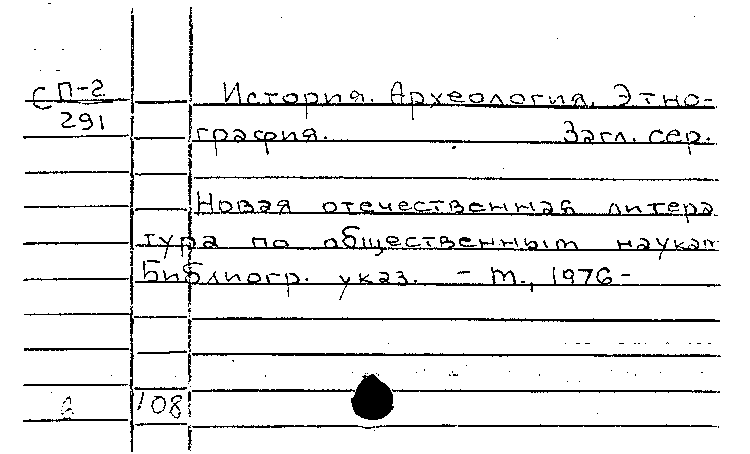 С П-2 История. Археология. Этно-
291 графия. Загл. сер.
Новая отечественная литера
тура по общественным наукам
Библиогр. указ. - М., 1976-
108